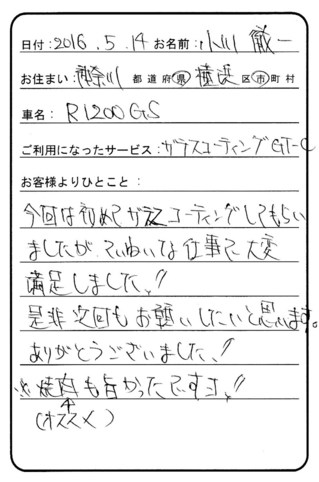 日付：2016．5．14 お名前：小川 徹一
お住まい：神奈川 都道府県 横浜 区市町村
車名：R1200GS
ご利用になったサービス：ガラスコーティングGT-C
お客様よりひとこと：
今回は初めてガラスコーティングしてもらい
ましたが ていねいな仕事で大変
満足しました!!
是非次回もお願いしたいと思います。
ありがとうございました!!
※焼肉も旨かったですヨ!!
(オススメ)